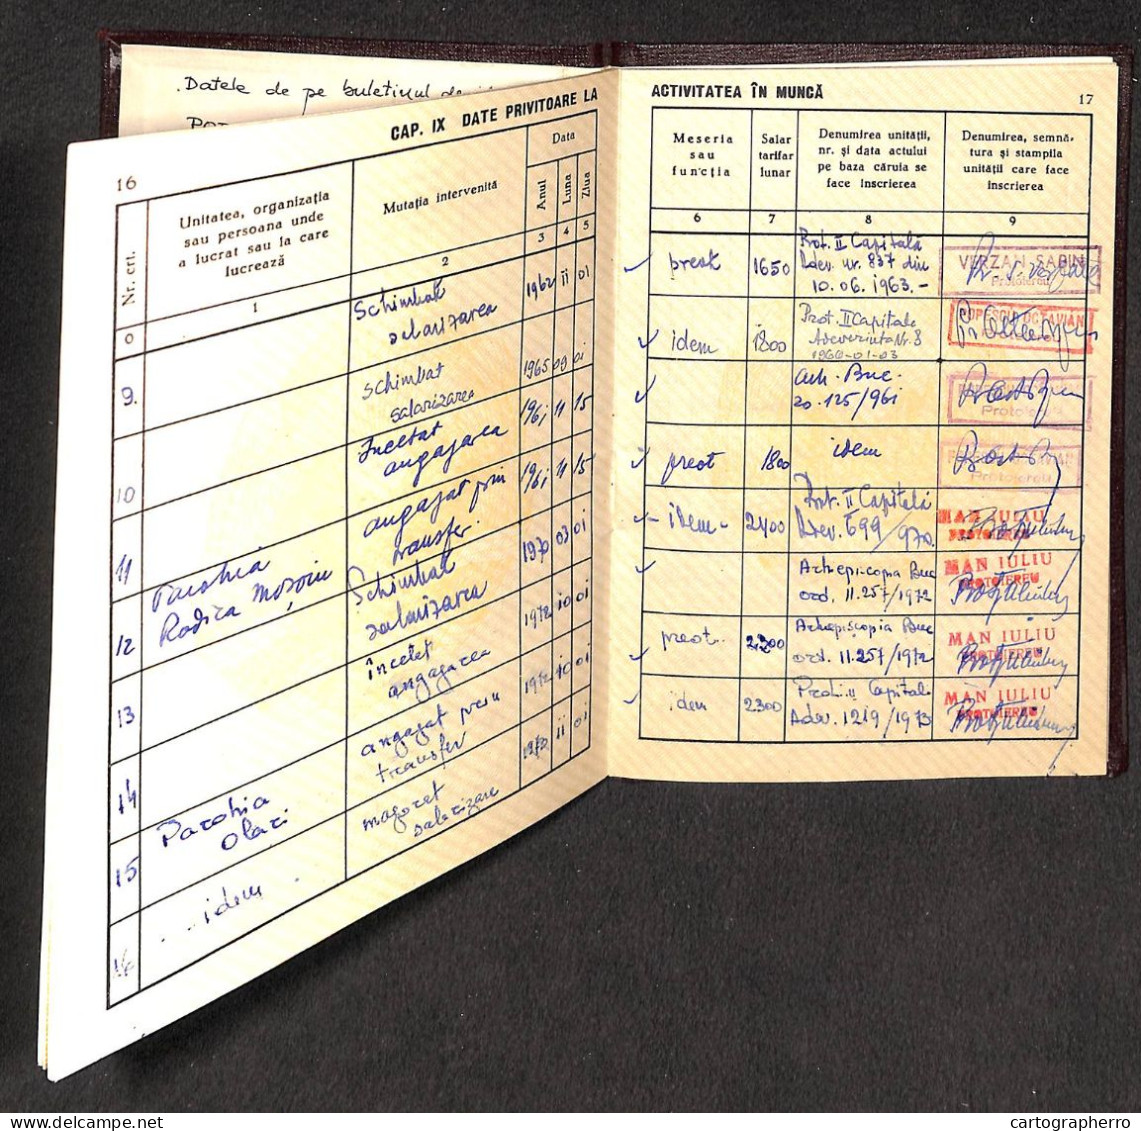 Datele de pe buletinul
16
CAP. IX DATE PRIVITOARE LA
Nr. crt.
Unitatea, organizația
sau persoana unde
a lucrat sau la care
lucrează
Mutația intervenită
Data
Anul
Luna
Ziua
0
1
2
3
4
5
9.
Schimbat
salarizarea
1962 11 01
10
schimbat
salarizarea
1965 09 01
11
Încetat
angajarea
15
12
Parohia
Radica
angajat prin
transfer.
15
13
Schimbat
salarizarea
1970 03 01
14
încetat
angagarea
1972 10 01
15
Parohia
Olari
angagat prin
transfer
1972 10 01
16
idem
magoret
salarizare
11 01
ACTIVITATEA ÎN MUNCĂ
17
Meseria
sau
funcția
Salar
tarifar
lunar
Denumirea unității,
nr. și data actului
pe baza căruia se
face înscrierea
Denumirea, semnă-
tura și stampila
unității care face
înscrierea
6
7
8
9
preot
1650
Prot. II Capitală
Adev. nr. 837 din
10.06.1963.-
VERZAN SABIN
Protoiereu
idem
1800
Prot. II Capitala
Adeverința Nr. 3
POPESCU OCTAVIAN
Arh. Buc.
20.125/961
Protoiereu
preot
1800
idem
Protoiereu
- idem -
2400
Prot. II Capitală
Adev. 699/970.
MAN IULIU
PROTOIEREU
Arhiepiscopia Buc
ord. 11.257/1972
MAN IULIU
PROTOIEREU
preot.
2300
Arhiepiscopia Buc
ord. 11.257/1972
MAN IULIU
PROTOIEREU
idem
2300
Prot. II Capitală
Adev. 1219/1973
MAN IULIU
PROTOIEREU
cartographerro